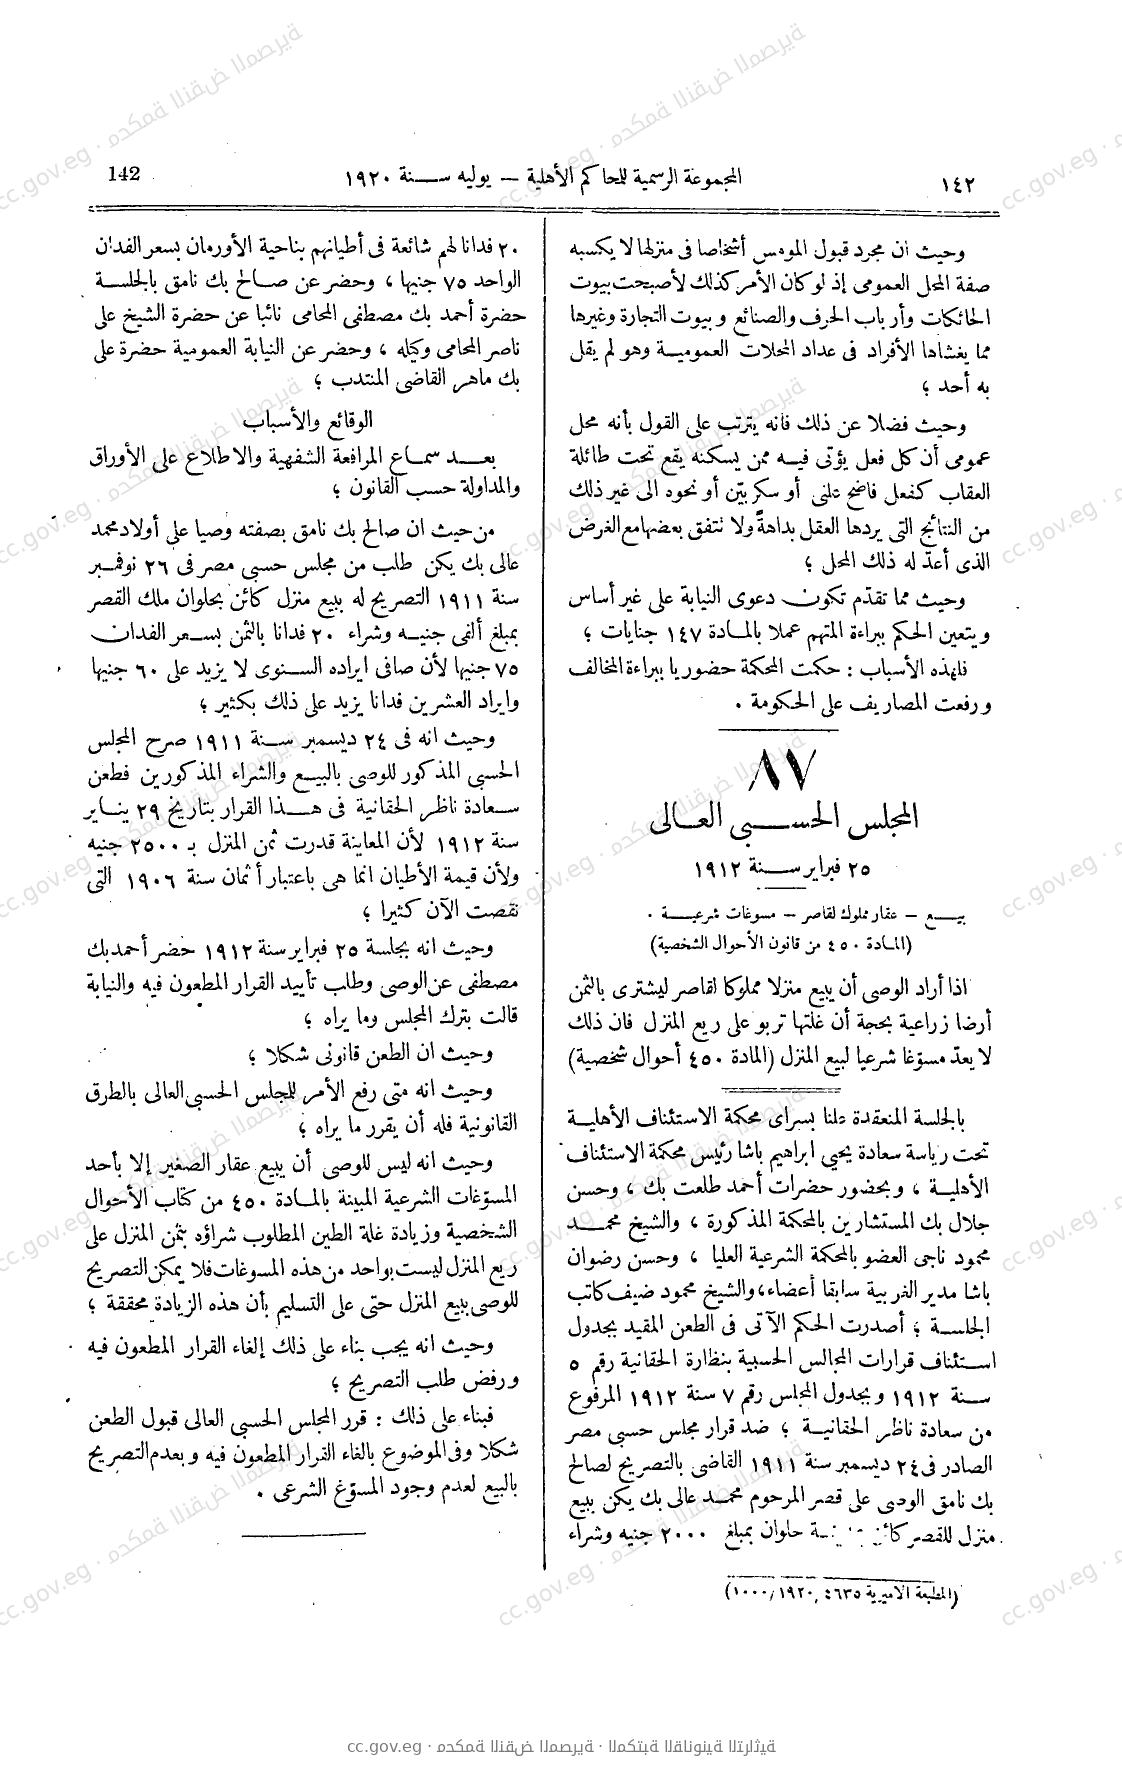 ١٤٢
المجموعة الرسمية للمحاكم الأهلية — يوليه سنة ١٩٢٠
142
وحيث ان مجرد قبول المومس أشخاصا فى منزلها لا يكسبه
صفة المحل العمومى إذ لو كان الأمر كذلك لأصبحت بيوت
الحائكات وأرباب الحرف والصنائع وبيوت التجارة وغيرها
مما يغشاها الأفراد فى عداد المحلات العمومية وهو لم يقل
به أحد ؛
وحيث فضلا عن ذلك فانه يترتب على القول بأنه محل
عمومى أن كل فعل يؤتى فيه ممن يسكنه يقع تحت طائلة
العقاب كفعل فاضح علنى أو سكر بيّن أو نحوه الى غير ذلك
من النتائج التى يردها العقل بداهة ولا نتفق بعضها مع الغرض
الذى أعدّ له ذلك المحل ؛
وحيث مما تقدّم تكون دعوى النيابة على غير أساس
ويتعين الحكم ببراءة المتهم عملا بالمادة ١٤٧ جنايات ؛
فلهذه الأسباب : حكمت المحكمة حضوريا ببراءة المخالف
ورفعت المصاريف على الحكومة .
٨٧
المجلس الحسبى العالى
٢٥ فبراير سنة ١٩١٢
بيع — عقار مملوك لقاصر — مسوغات شرعية .
(المادة ٤٥٠ من قانون الأحوال الشخصية)
اذا أراد الوصى أن يبيع منزلا مملوكا لقاصر ليشترى بالثمن
أرضا زراعية بحجة أن غلتها تربو على ريع المنزل فان ذلك
لا يعدّ مسوّغا شرعيا لبيع المنزل (المادة ٤٥٠ أحوال شخصية)
بالجلسة المنعقدة علنا بسراى محكمة الاستئناف الأهلية
تحت رياسة سعادة يحيى ابراهيم باشا رئيس محكمة الاستئناف
الأهلية ، وبحضور حضرات أحمد طلعت بك ، وحسن
جلال بك المستشارين بالمحكمة المذكورة ، والشيخ محمد
محمود ناجى العضو بالمحكمة الشرعية العليا ، وحسن رضوان
باشا مدير الغربية سابقا أعضاء، والشيخ محمود ضيف كاتب
الجلسة ؛ أصدرت الحكم الآتى فى الطعن المقيد بجدول
استئناف قرارات المجالس الحسبية بنظارة الحقانية رقم ٥
سنة ١٩١٢ وبجدول المجلس رقم ٧ سنة ١٩١٢ المرفوع
من سعادة ناظر الحقانية ؛ ضد قرار مجلس حسبى مصر
الصادر فى ٢٤ ديسمبر سنة ١٩١١ القاضى بالتصريح لصالح
بك نامق الوصى على قصر المرحوم محمد عالى بك يكن ببيع
منزل للقصر كائن حلوان بمبلغ ٢٠٠٠ جنيه وشراء
(المطبعة الاميرية ٤٦٣٥/١٩٢٠/١٠٠٠)
٢٠ فدانا لهم شائعة فى أطيانهم بناحية الأورمان بسعر الفدان
الواحد ٧٥ جنيها ، وحضر عن صالح بك نامق بالجلسة
حضرة أحمد بك مصطفى المحامى نائبا عن حضرة الشيخ على
ناصر المحامى وكيله ، وحضر عن النيابة العمومية حضرة على
بك ماهر القاضى المنتدب ؛
الوقائع والأسباب
بعد سماع المرافعة الشفهية والاطلاع على الأوراق
والمداولة حسب القانون ؛
من حيث ان صالح بك نامق بصفته وصيا على أولاد محمد
عالى بك يكن طلب من مجلس حسبى مصر فى ٢٦ نوفمبر
سنة ١٩١١ التصريح له ببيع منزل كائن بحلوان ملك القصر
بمبلغ ألفى جنيه وشراء ٢٠ فدانا بالثمن بسعر الفدان
٧٥ جنيها لأن صافى ايراده السنوى لا يزيد على ٦٠ جنيها
وايراد العشرين فدانا يزيد على ذلك بكثير ؛
وحيث انه فى ٢٤ ديسمبر سنة ١٩١١ صرح المجلس
الحسبى المذكور للوصى بالبيع والشراء المذكورين فطعن
سعادة ناظر الحقانية فى هذا القرار بتاريخ ٢٩ يناير
سنة ١٩١٢ لأن المعاينة قدرت ثمن المنزل بـ ٢٥٠٠ جنيه
ولأن قيمة الأطيان انما هى باعتبار أثمان سنة ١٩٠٦ التى
نقصت الآن كثيرا ؛
وحيث انه بجلسة ٢٥ فبراير سنة ١٩١٢ حضر أحمد بك
مصطفى عن الوصى وطلب تأييد القرار المطعون فيه والنيابة
قالت بترك المجلس وما يراه ؛
وحيث ان الطعن قانونى شكلا ؛
وحيث انه متى رفع الأمر للمجلس الحسبى العالى بالطرق
القانونية فله أن يقرر ما يراه ؛
وحيث انه ليس للوصى أن يبيع عقار الصغير إلا بأحد
المسوّغات الشرعية المبينة بالمادة ٤٥٠ من كتاب الأحوال
الشخصية وزيادة غلة الطين المطلوب شراؤه بثمن المنزل على
ريع المنزل ليست بواحد من هذه المسوغات فلا يمكن التصريح
للوصى ببيع المنزل حتى على التسليم بأن هذه الزيادة محققة ؛
وحيث انه يجب بناء على ذلك إلغاء القرار المطعون فيه
ورفض طلب التصريح ؛
فبناء على ذلك : قرر المجلس الحسبى العالى قبول الطعن
شكلا وفى الموضوع بالغاء القرار المطعون فيه وبعدم التصريح
بالبيع لعدم وجود المسوّغ الشرعى .
cc.gov.eg · محكمة النقض المصرية · المكتبة القانونية التراثية